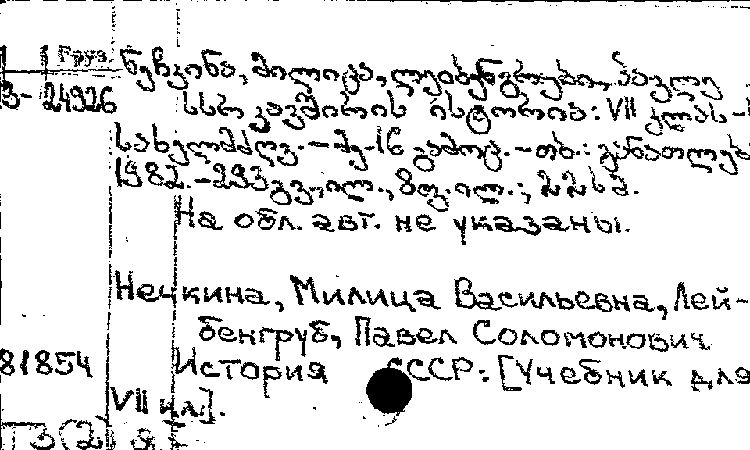 Груз. ნეჩკინა, მილიცა, ლეიბენგრუბი, პავლე
3-24926 სსრ კავშირის ისტორია: VII კლას-
სახელმძღვ. – მე-16 გამოც. – თბ.: განათლება
1982. – 293 გვ., ил., 8 ფ. ილ.; 22 სმ.
На обл. авт. не указаны.
Нечкина, Милица Васильевна, Лей-
бенгруб, Павел Соломонович
81854 История СССР: [Учебник для
VII кл.].
Т3(2)